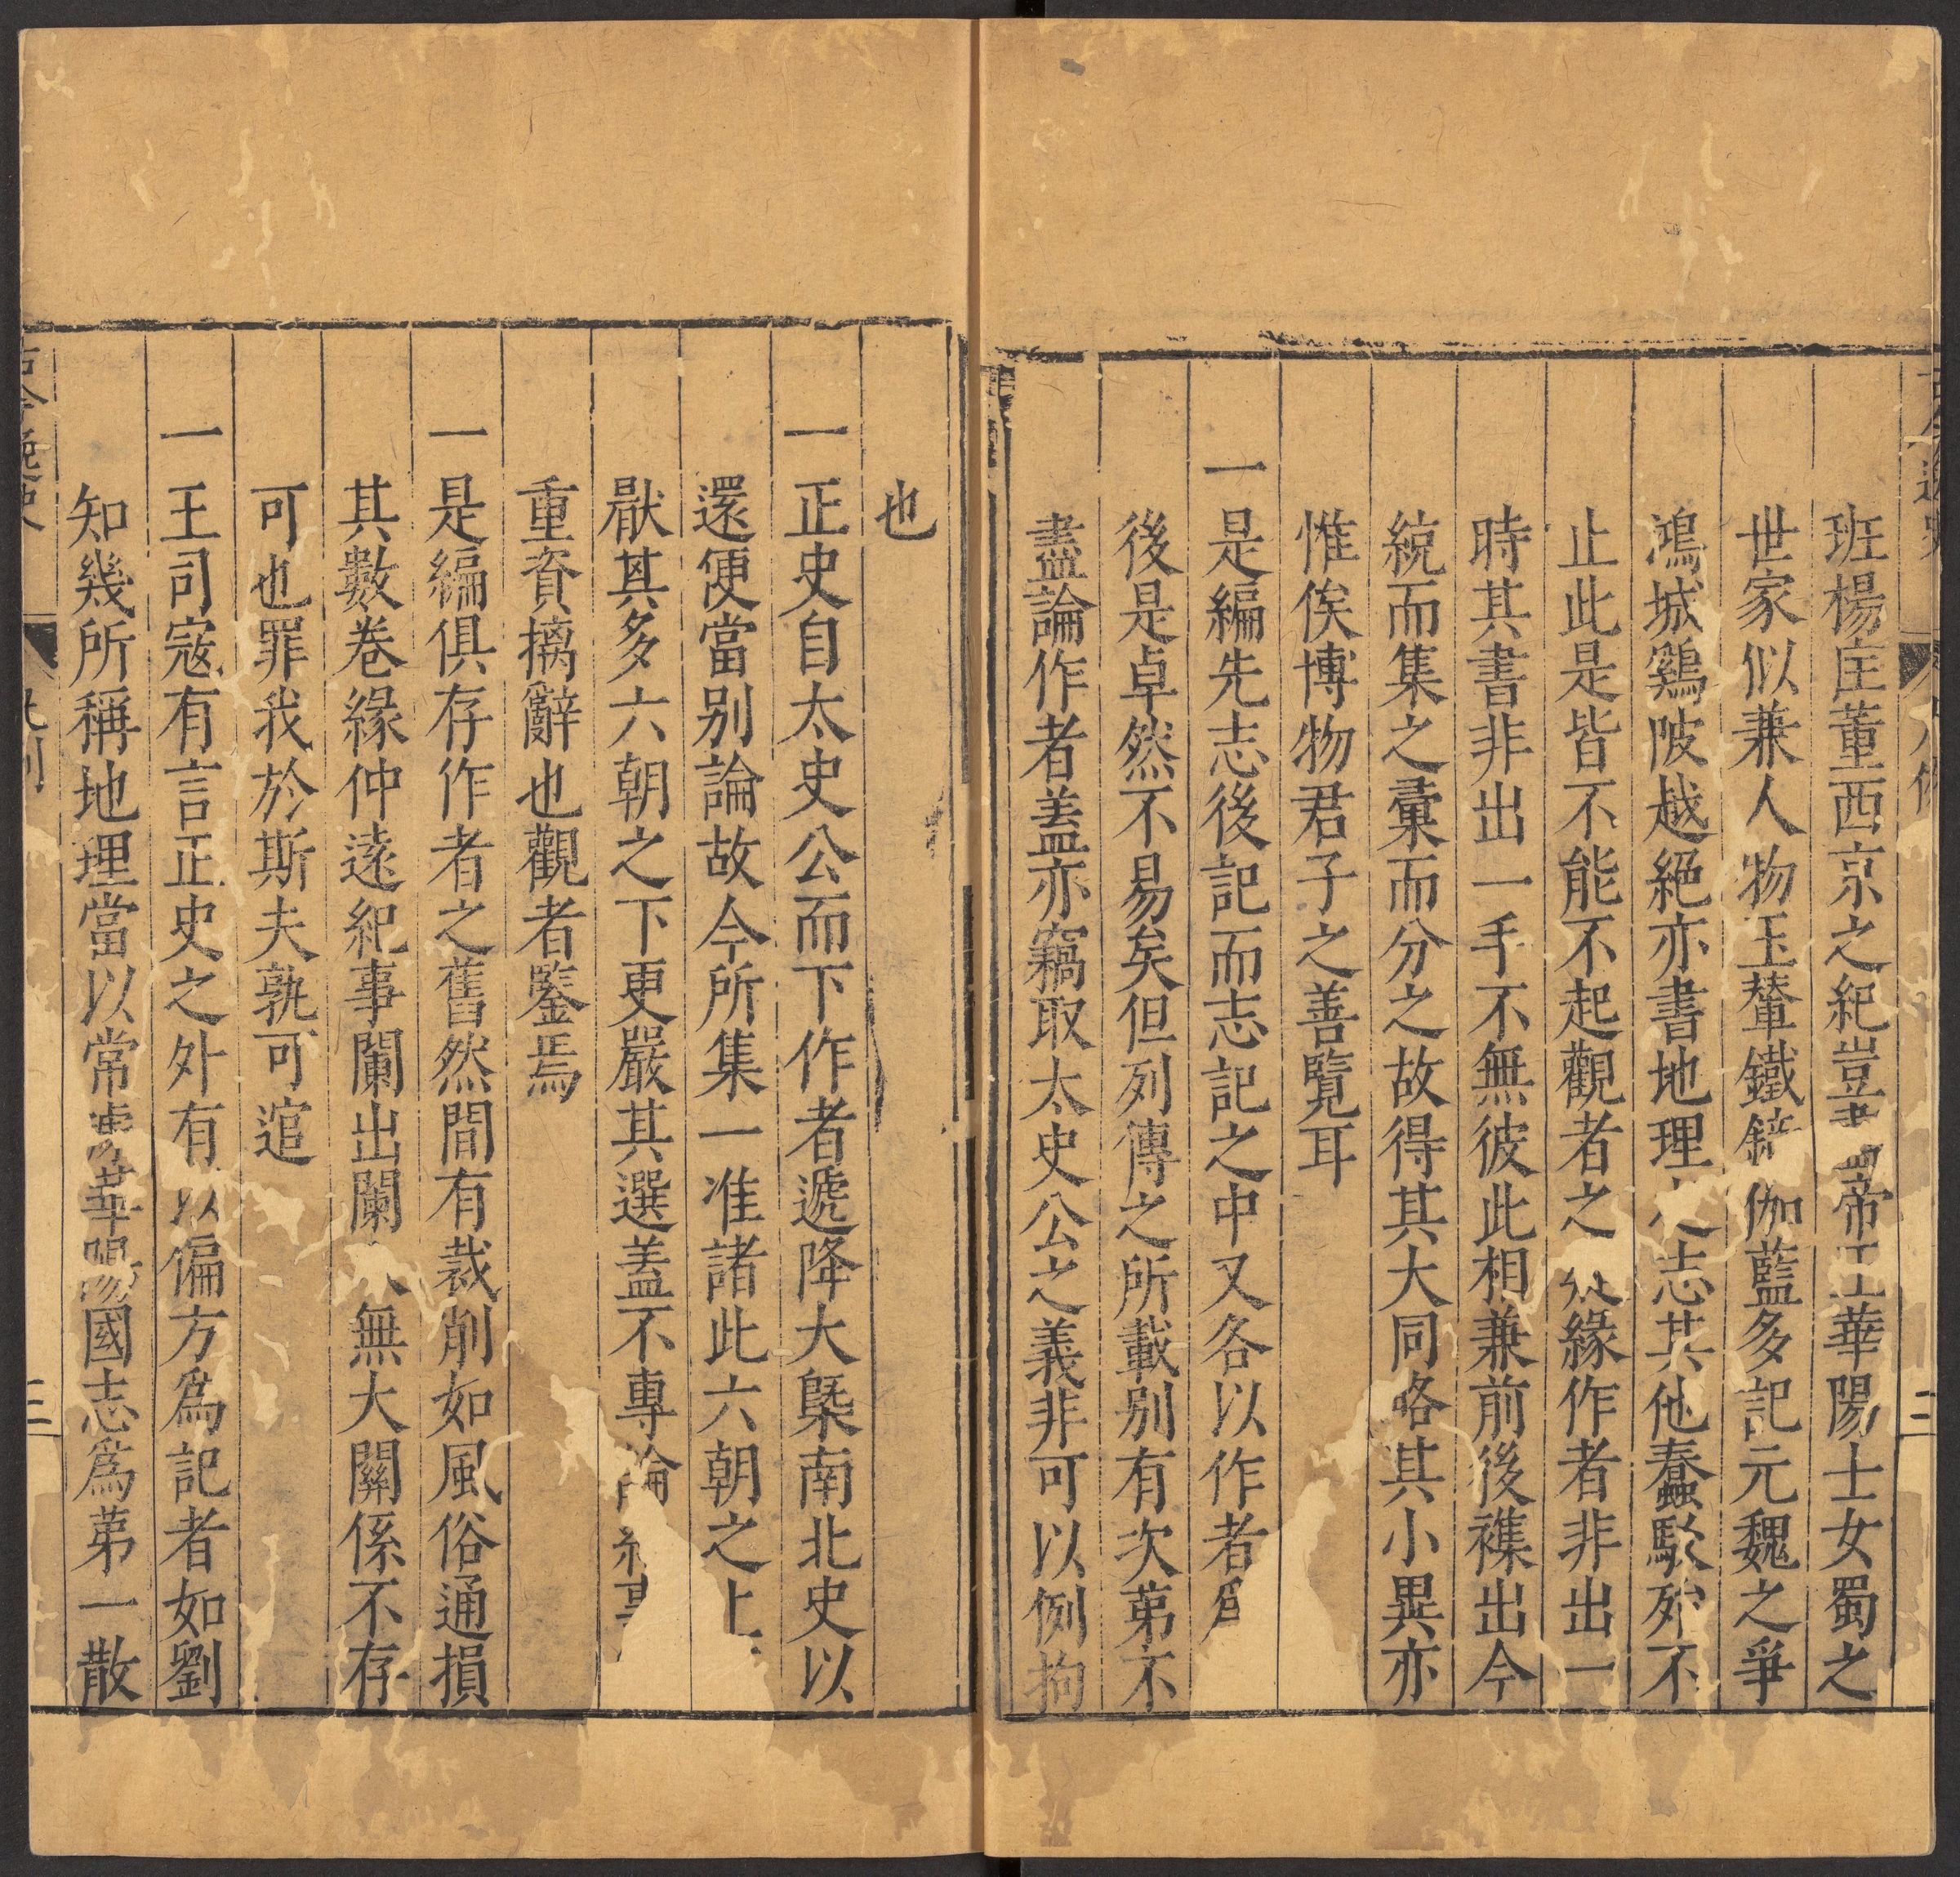 班楊㕴董西京之紀豈帝王華陽士女蜀之
世家似兼人物玉輦鐵伽藍多記元魏之爭
鴻城鷄陂越絕亦書地理之志其他蠢駁殄不
止此是皆不能不起觀者之緣作者非出一
時其書非出一手不無彼此相兼前後襍出今
統而集之彙而分之故得其大同畧其小異亦
惟俟博物君子之善覽耳
一是編先志後記而志記之中又各以作者爲
後是卓然不易矣但列傳之所載別有次第不
盡論作者盖亦竊取太史公之義非可以例拘
也
一正史自太史公而下作者遞降大槩南北史以
還便當別論故今所集一准諸此六朝之上
厭其多六朝之下更嚴其選盖不專論紀事
重資摛辭也觀者鑒焉
一是編俱存作者之舊然間有裁削如風俗通損
其數卷緣仲遠紀事闌出闌入無大關係不存
可也罪我於斯夫孰可逭
一王司寇有言正史之外有以偏方爲記者如劉
知幾所稱地理當以常璩華陽國志爲第一散
古今逸史
凡例
三